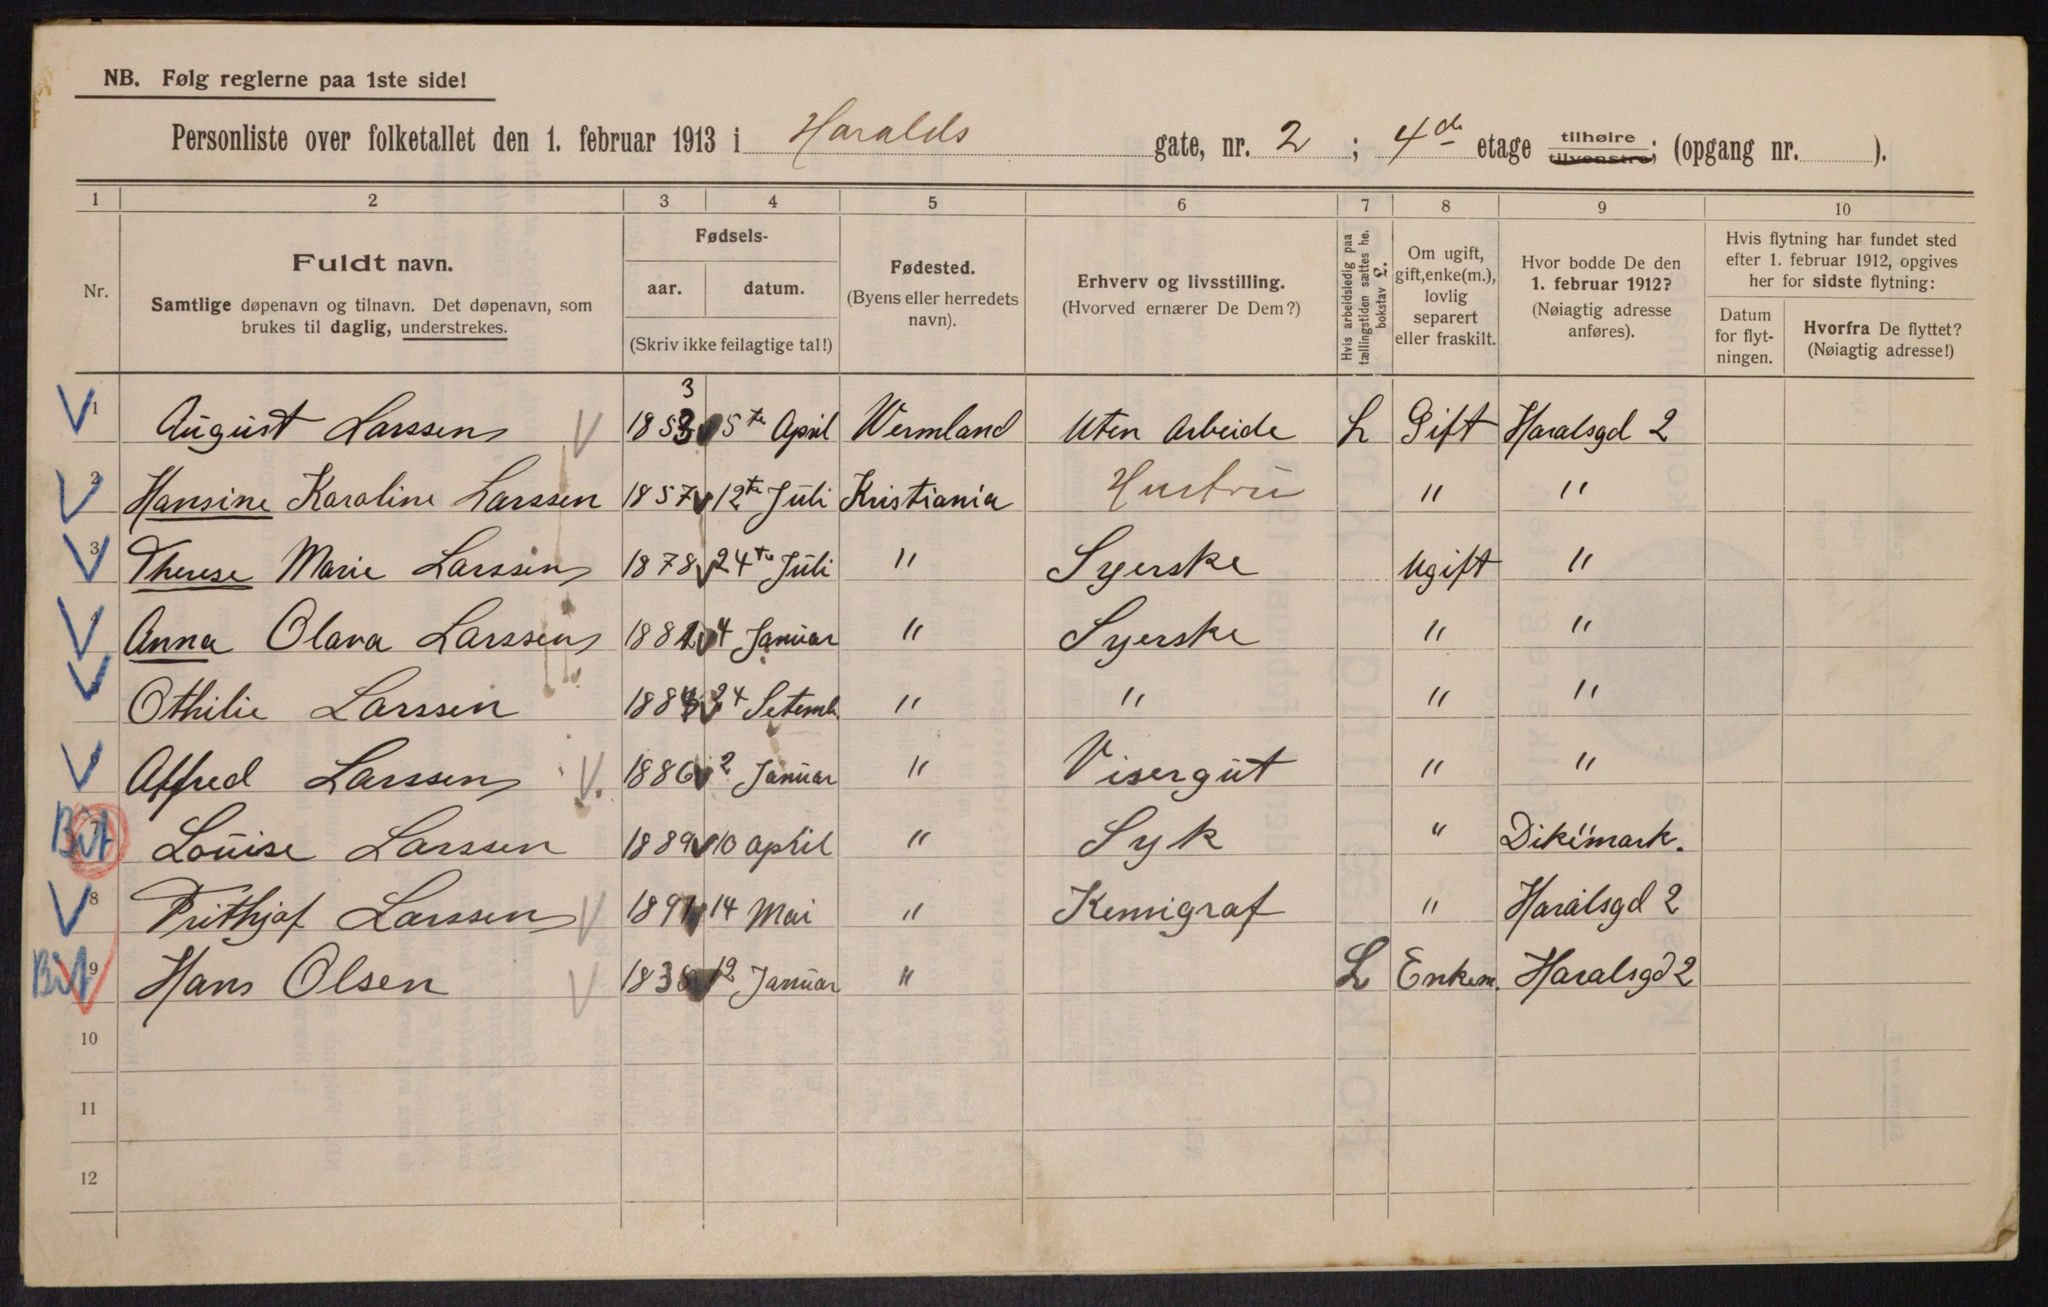 NB. Følg reglerne paa 1ste side!
Personliste over folketallet den 1. februar 1913 i Haralds gate, nr. 2; 4de etage tilhøire tilvenstre; (opgang nr. ).
1 2 3 4 5 6 7 8 9 10
Nr.
Fuldt navn.
Samtlige døpenavn og tilnavn. Det døpenavn, som
brukes til daglig, understrekes.
Fødsels-
aar. datum.
(Skriv ikke feilagtige tal!)
Fødested.
(Byens eller herredets
navn).
Erhverv og livsstilling.
(Hvorved ernærer De Dem?)
Hvis arbeidsledig paa
tællingstiden sættes he.
bokstav L.
Om ugift,
gift, enke(m.),
lovlig
separert
eller fraskilt.
Hvor bodde De den
1. februar 1912?
(Nøiagtig adresse
anføres).
Hvis flytning har fundet sted
efter 1. februar 1912, opgives
her for sidste flytning:
Datum
for flyt-
ningen.
Hvorfra De flyttet?
(Nøiagtig adresse!)
3
1 August Larssen 1853 5te April Wermland Uten Arbeide L Gift Haralsgd 2
2 Hansine Karoline Larssen 1857 12te Juli Kristiania Hustru " "
3 Therese Marie Larssen 1878 24te Juli " Syerske Ugift "
4 Anna Olava Larssen 1882 4 Januar " Syerske " "
5 Othilie Larssen 24 Setemb " " " "
6 Alfred Larssen 1886 2 Januar " Visergut " "
7 Louise Larssen 1889 10 April " Syk " Dikemark.
8 Frithjof Larssen 1891 14 Mai " Kemigraf " Haralsgd 2
9 Hans Olsen 1838 12 Januar " L Enkem. Haralsgd 2
10
11
12